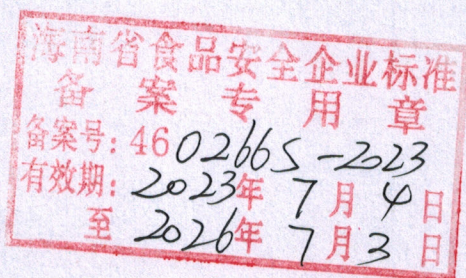 海南省食品安全企业标准
备案专用章
备案号：460266S-2023
有效期：2023年7月4日
至2026年7月3日